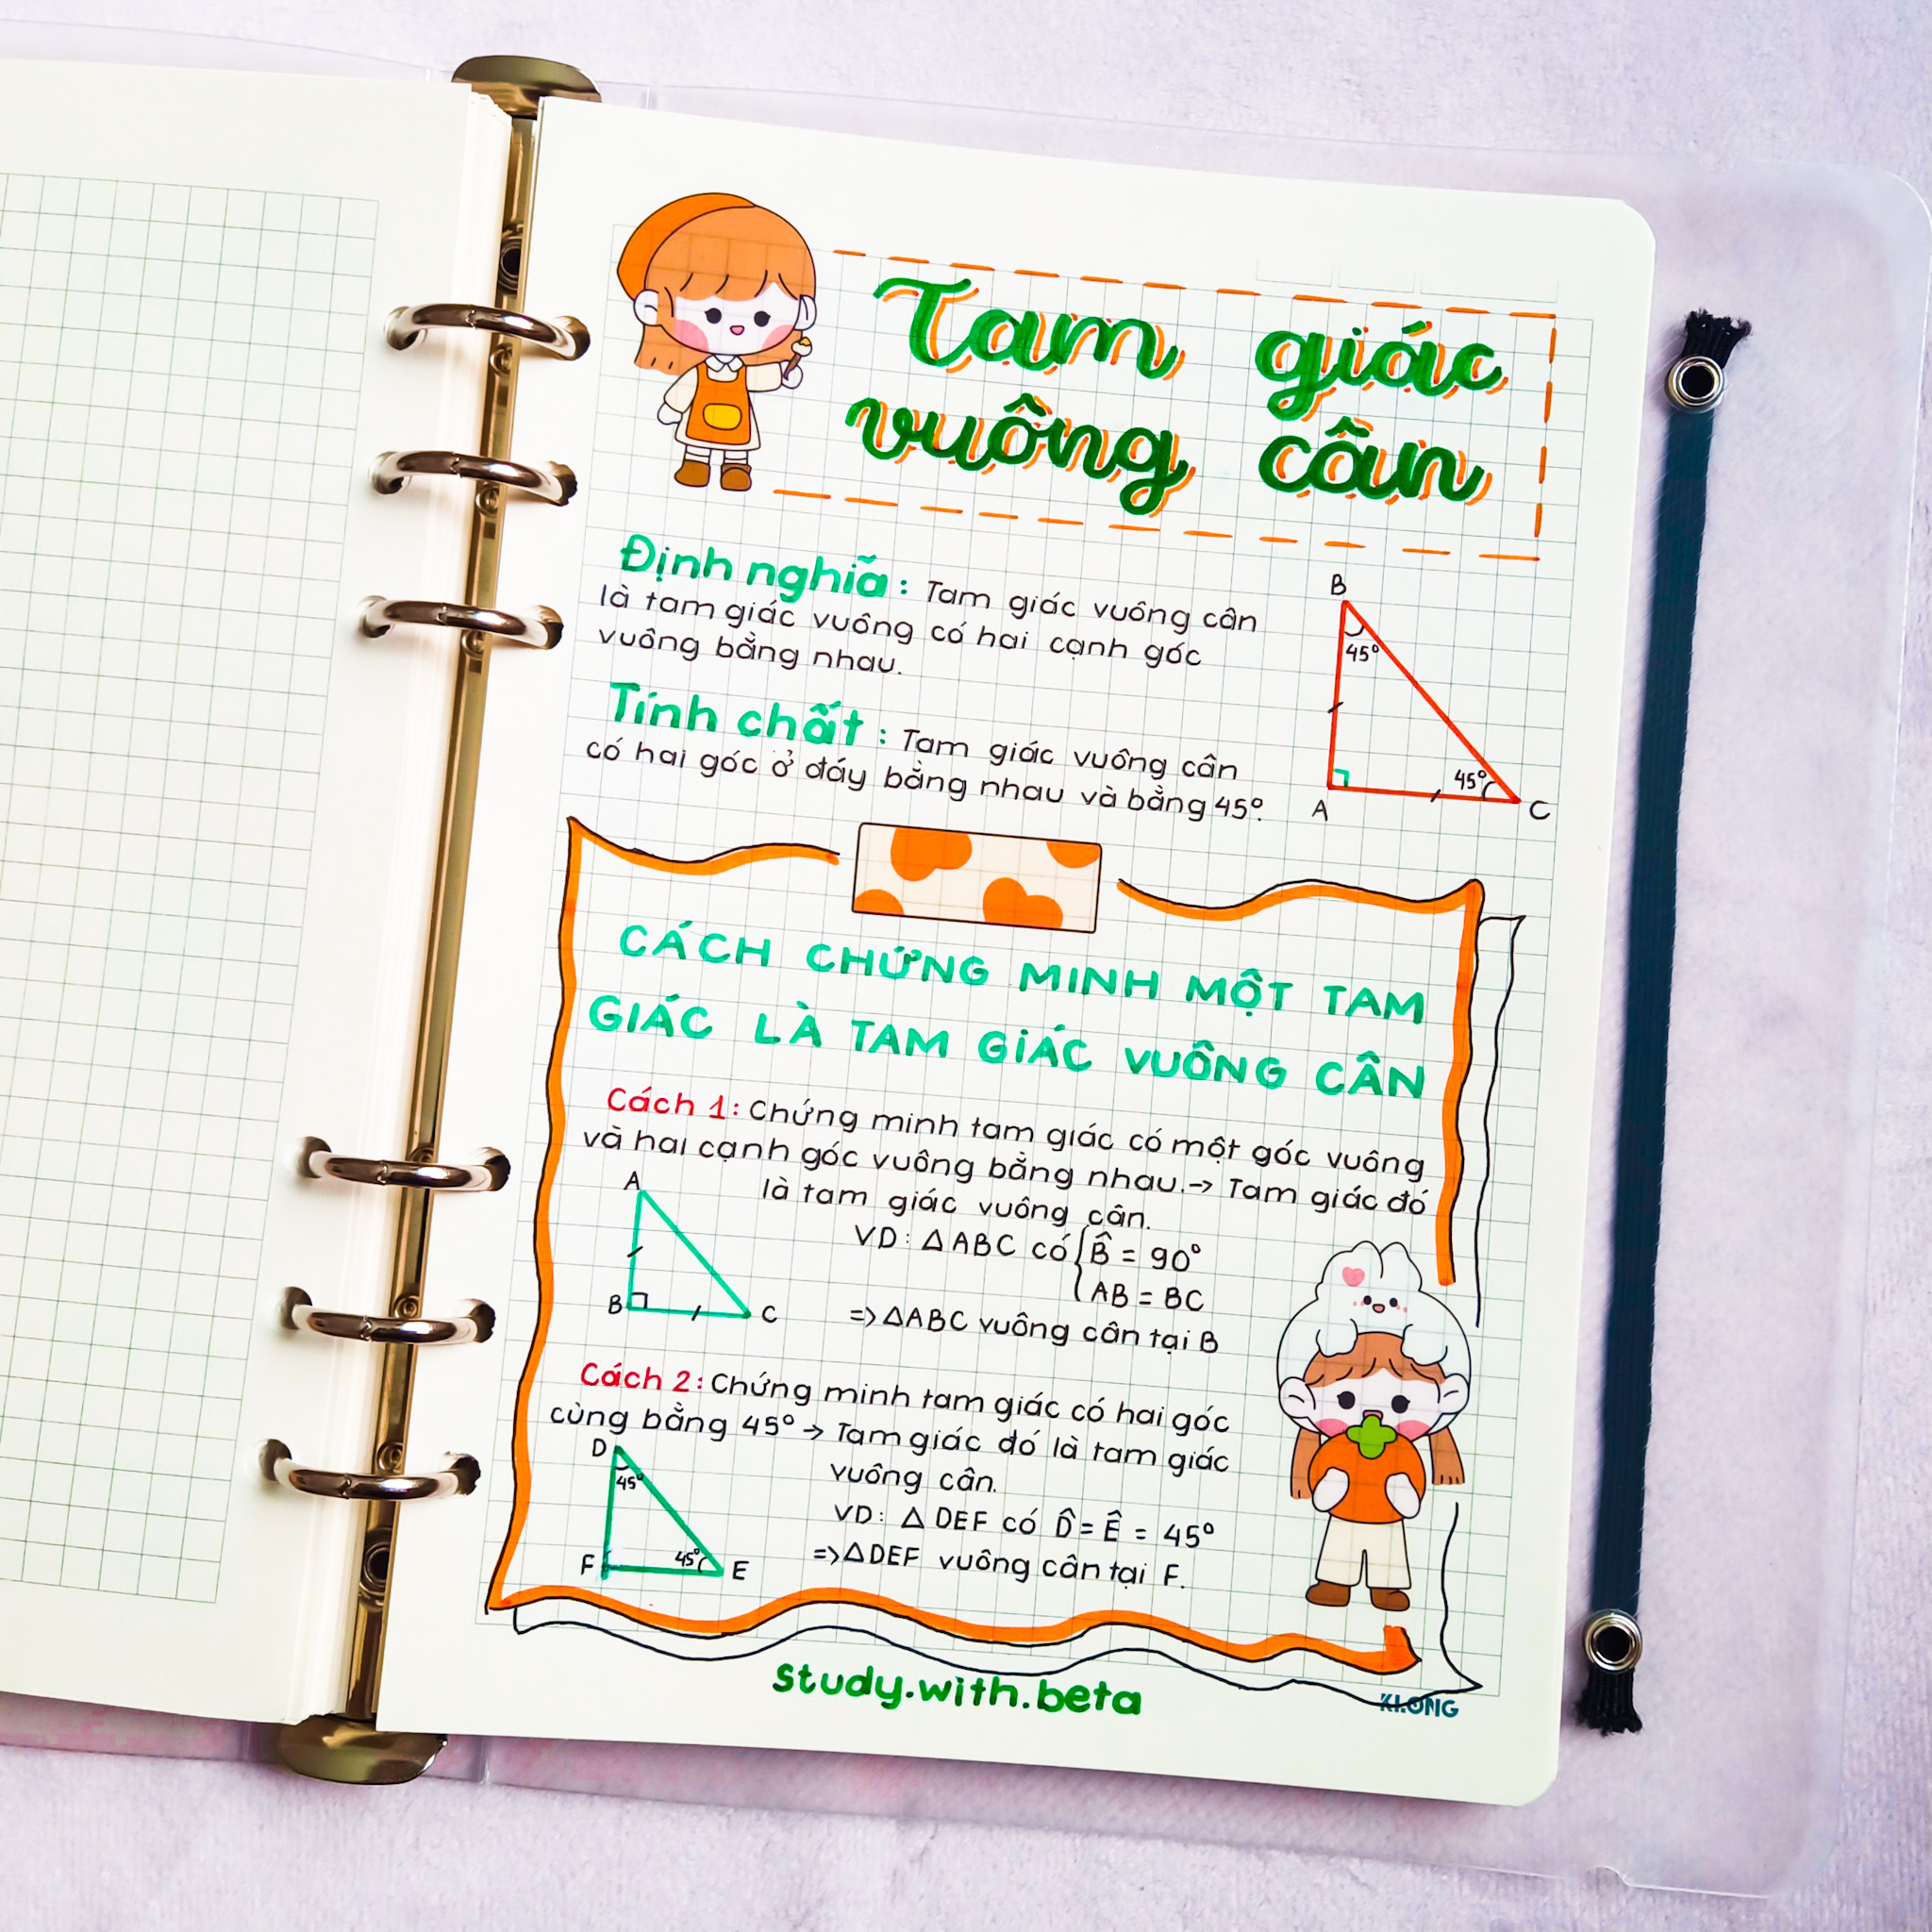 Tam giác
vuông cân
Định nghĩa : Tam giác vuông cân
là tam giác vuông có hai cạnh góc
vuông bằng nhau.
B
45°
45°
A
C
Tính chất : Tam giác vuông cân
có hai góc ở đáy bằng nhau và bằng 45°.
CÁCH CHỨNG MINH MỘT TAM
GIÁC LÀ TAM GIÁC VUÔNG CÂN
Cách 1: Chứng minh tam giác có một góc vuông
và hai cạnh góc vuông bằng nhau.→ Tam giác đó
là tam giác vuông cân.
A
B
C
VD: △ABC có { B̂ = 90°
AB = BC
=> △ABC vuông cân tại B
Cách 2: Chứng minh tam giác có hai góc
cùng bằng 45° → Tam giác đó là tam giác
vuông cân.
D
45°
F
45°
E
VD: △ DEF có D̂ = Ê = 45°
=> △DEF vuông cân tại F.
study.with.beta
KLONG